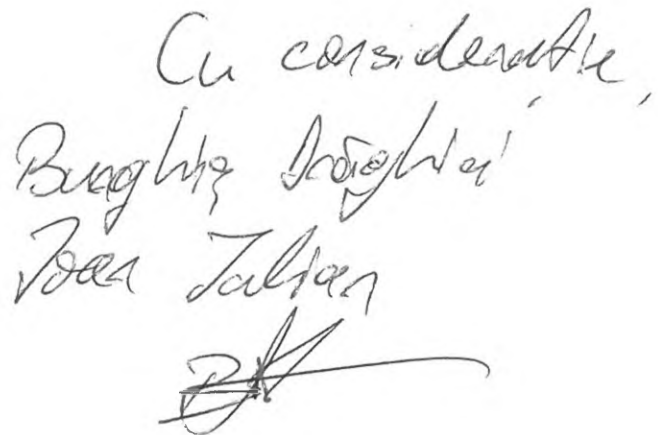 Cu considerație,
Burghiș Drăghici
Ioan Iulian